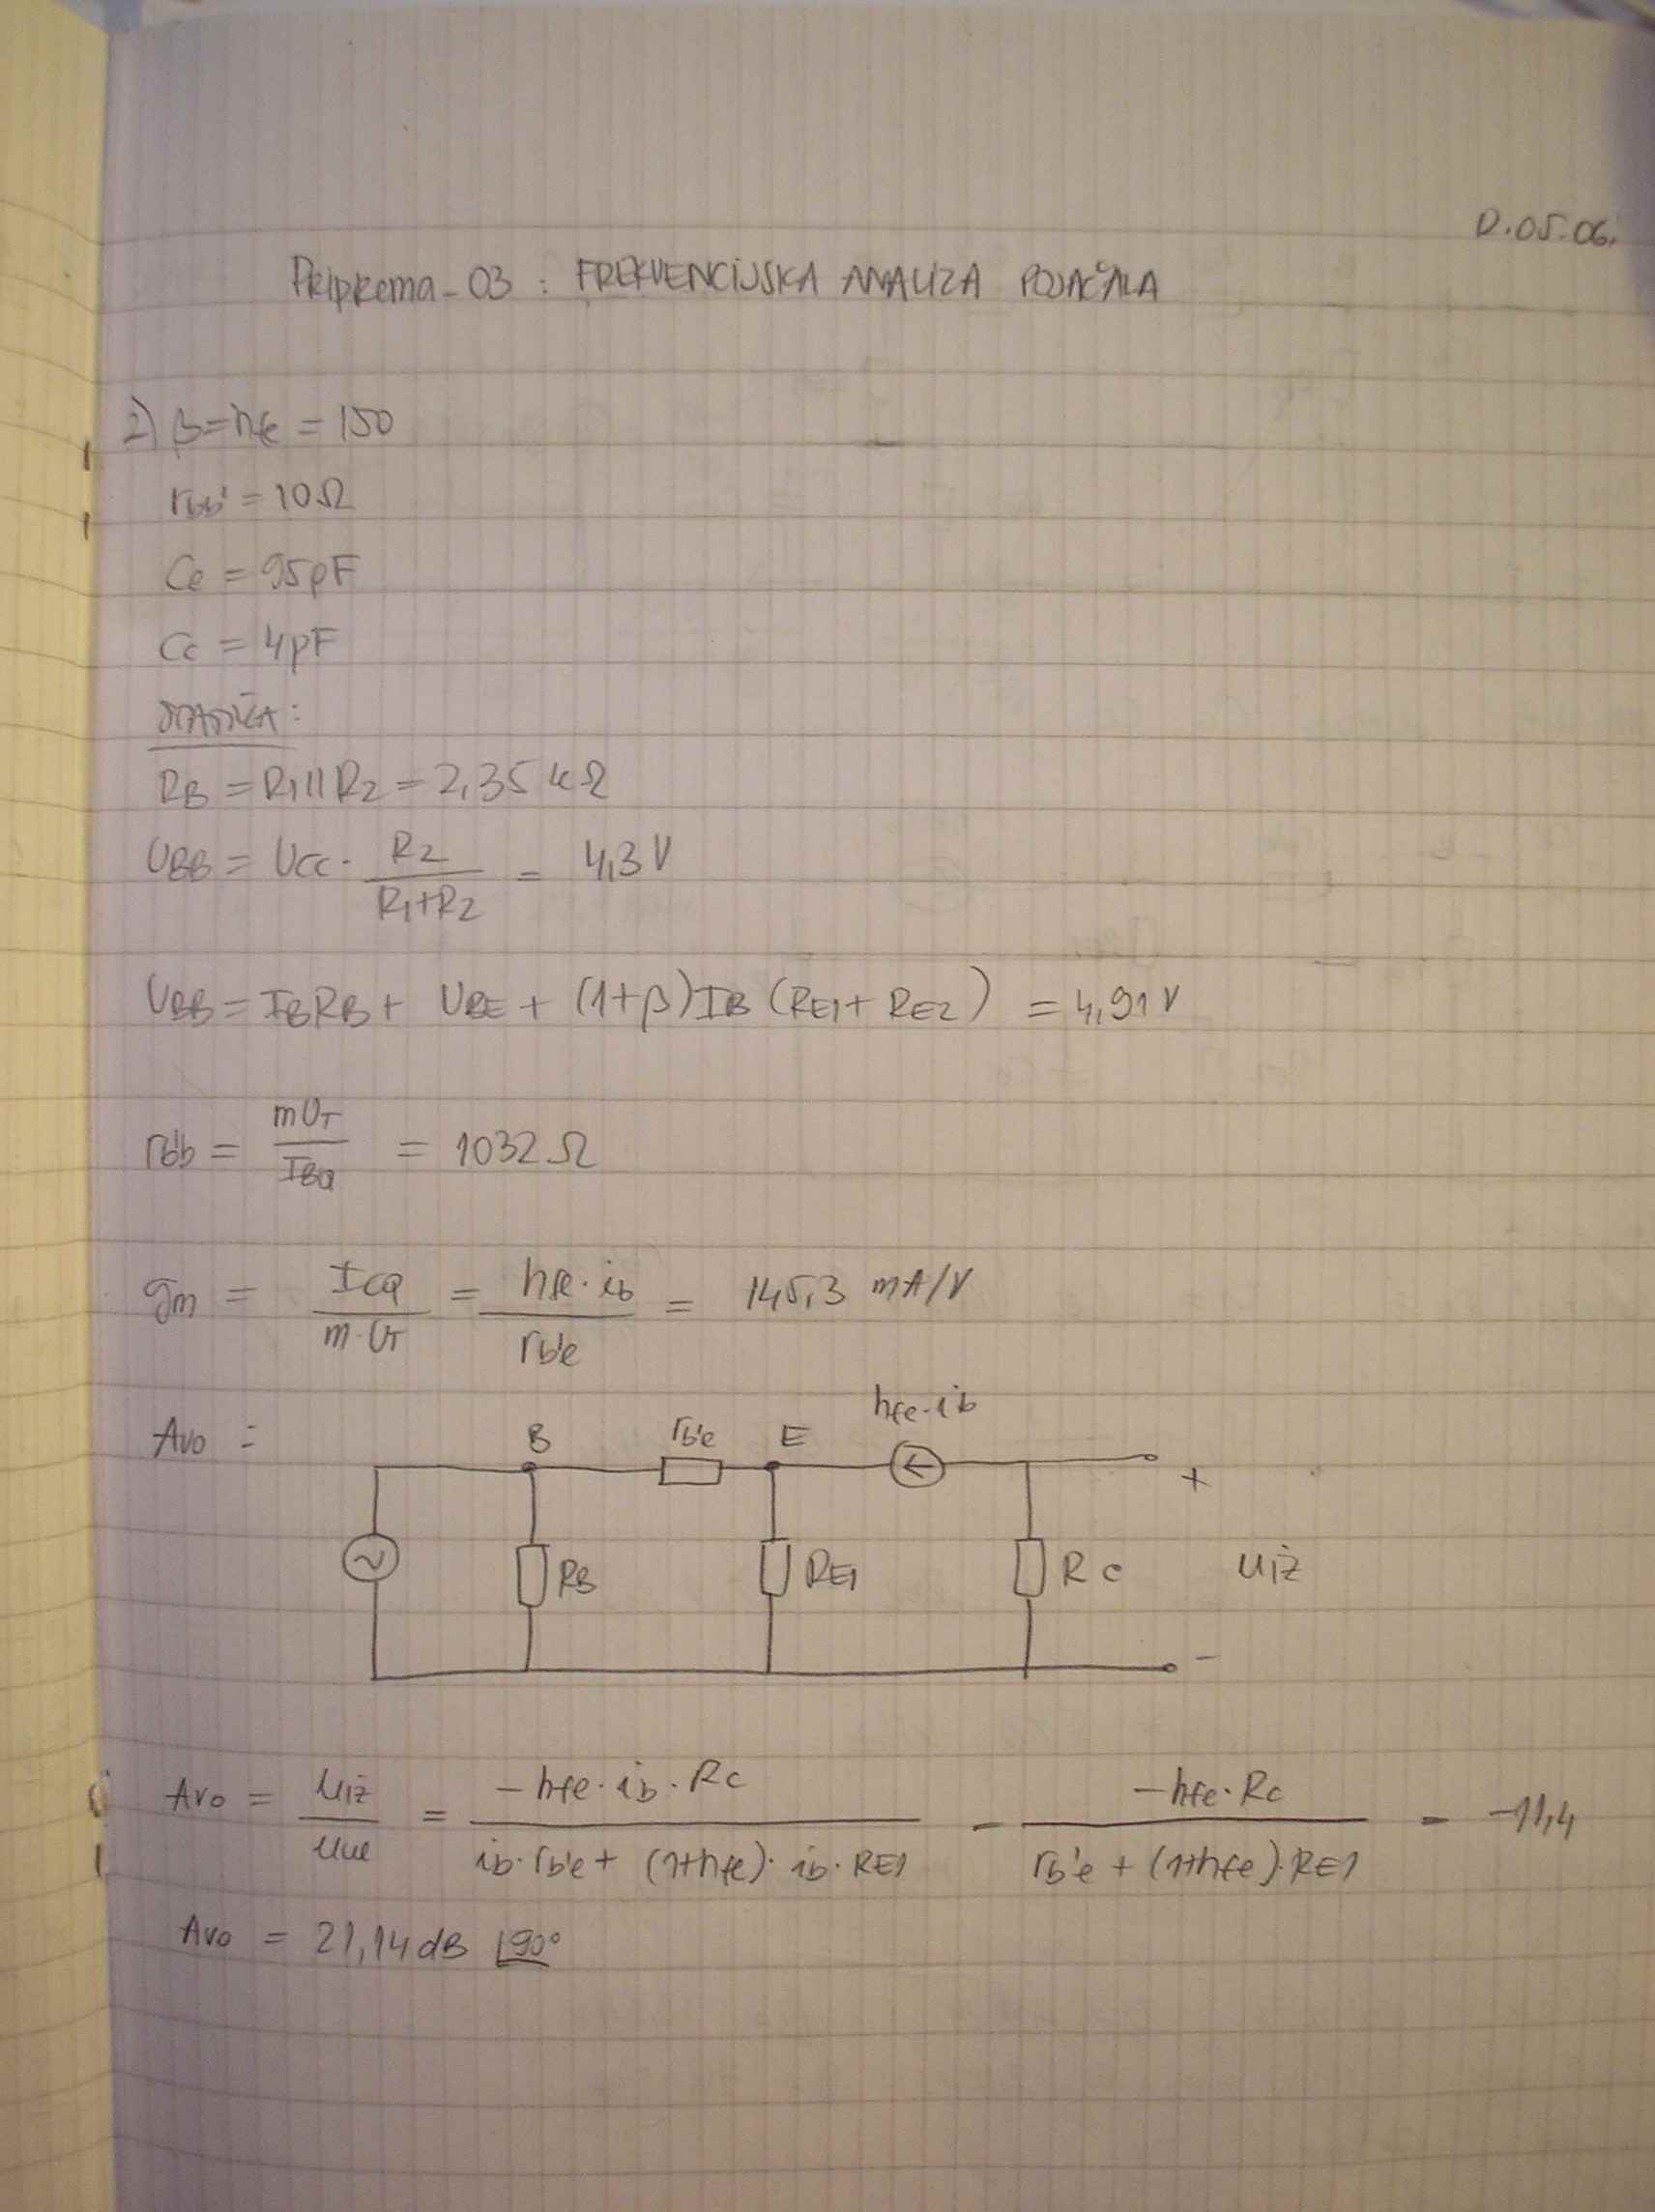 D.05.06.
Priprema_03 : FREKVENCIJSKA ANALIZA POJAČALA
2) β=hfe = 150
rbb' = 10Ω
Ce = 95pF
Cc = 4pF
STATIKA:
RB = R1||R2 = 2,35 kΩ
UBB = UCC · R2/(R1+R2) = 4,3 V
UBB = IBRB + UBE + (1+β)IB (RE1+ RE2) = 4,91 V
rb'b = mUT/IBQ = 1032 Ω
gm = ICQ/(m·UT) = hfe·ib/rb'e = 145,3 mA/V
hfe·ib
Avo = B rb'e E
+
RB RE1 RC uiz
-
Avo = uiz/uul = -hfe·ib·RC/(ib·rb'e + (1+hfe)·ib·RE1) = -hfe·RC/(rb'e + (1+hfe)·RE1) = -11,4
Avo = 21,14 dB ∠90°